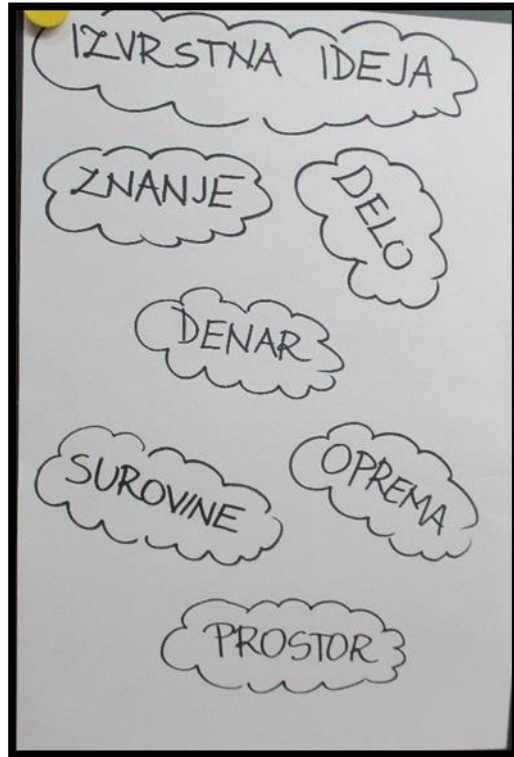 IZVRSTNA IDEJA
ZNANJE
DELO
DENAR
SUROVINE
OPREMA
PROSTOR